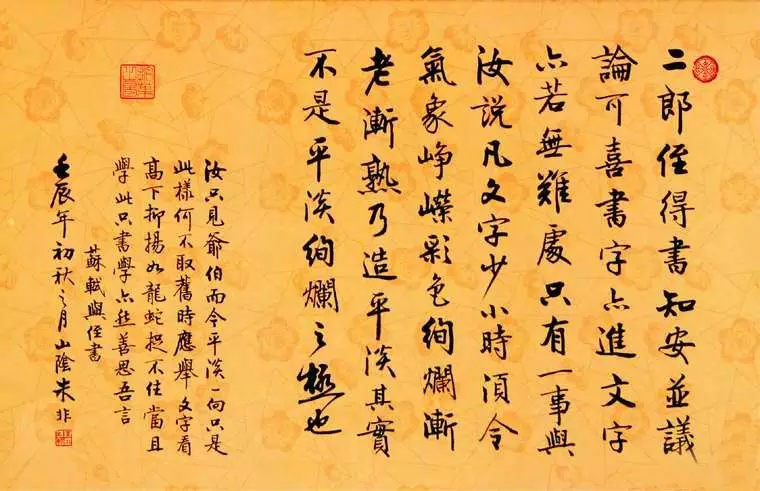 二郎侄得書知安並議
論可喜書字亦進文字
亦若無難處只有一事與
汝説凡文字少小時須令
氣象崢嶸彩色絢爛漸
老漸熟乃造平淡其實
不是平淡絢爛之極也
汝只見爺伯而今平淡一向只是
此樣何不取舊時應舉文字看
高下抑揚如龍蛇捉不住當且
學此只書學亦然善思吾言
蘇軾與侄書
壬辰年初秋之月山陰朱非